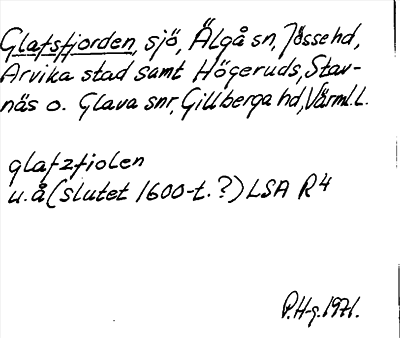 Glafsfjorden, sjö, Älgå sn, Jösse hd,
Arvika stad samt Högeruds, Stav-
näs o. Glava snr, Gillberga hd, Värml. l.
glafzfiolen
u.å (slutet 1600-t. ?) LSA R4
P.H-g. 1971.